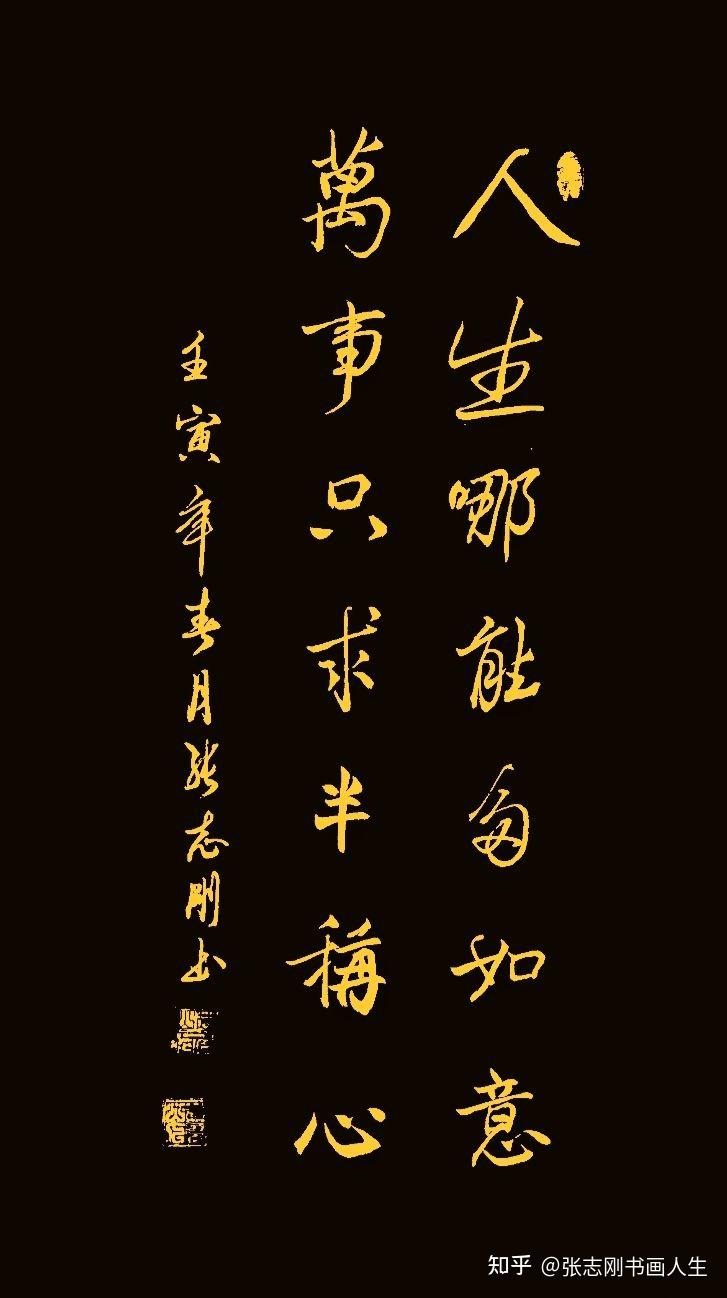 人生哪能多如意
萬事只求半稱心
壬寅年春月張志剛书
知乎 @张志刚书画人生